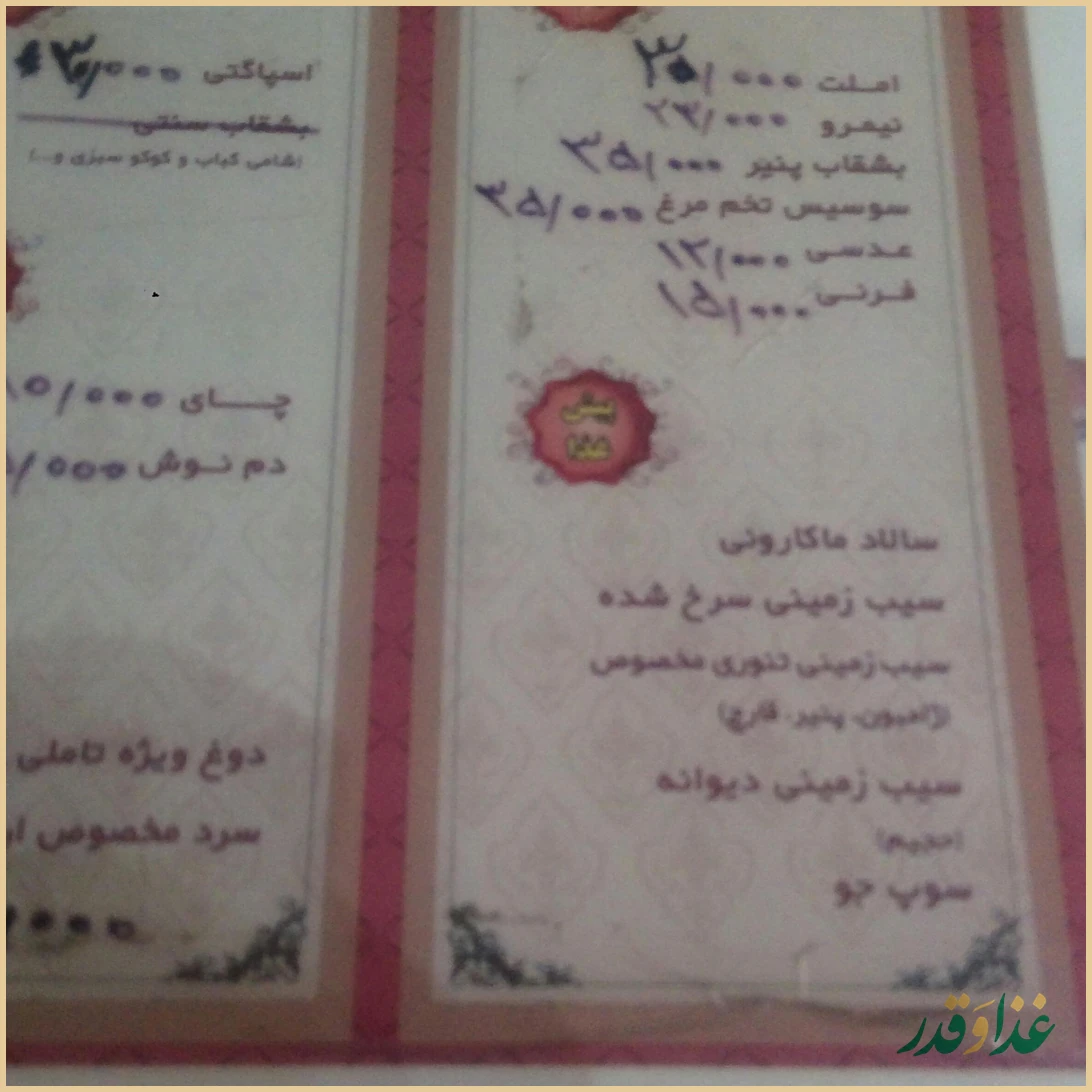 املت ۳۰/۰۰۰
نیمرو ۲۳/۰۰۰
بشقاب پنیر ۳۵/۰۰۰
سوسیس تخم مرغ ۳۵/۰۰۰
عدسی ۱۲/۰۰۰
فرنی ۱۵/۰۰۰
پیش
غذا
سالاد ماکارونی
سیب زمینی سرخ شده
سیب زمینی تنوری مخصوص
(ژامبون، پنیر، قارچ)
سیب زمینی دیوانه
(حجیم)
سوپ جو
اسپاگتی
بشقاب سنتی
(شامی کباب و کوکو سبزی و...)
چای ۱۵/۰۰۰
دم نوش
دوغ ویژه تاملی
سرد مخصوص
غذا و قدر